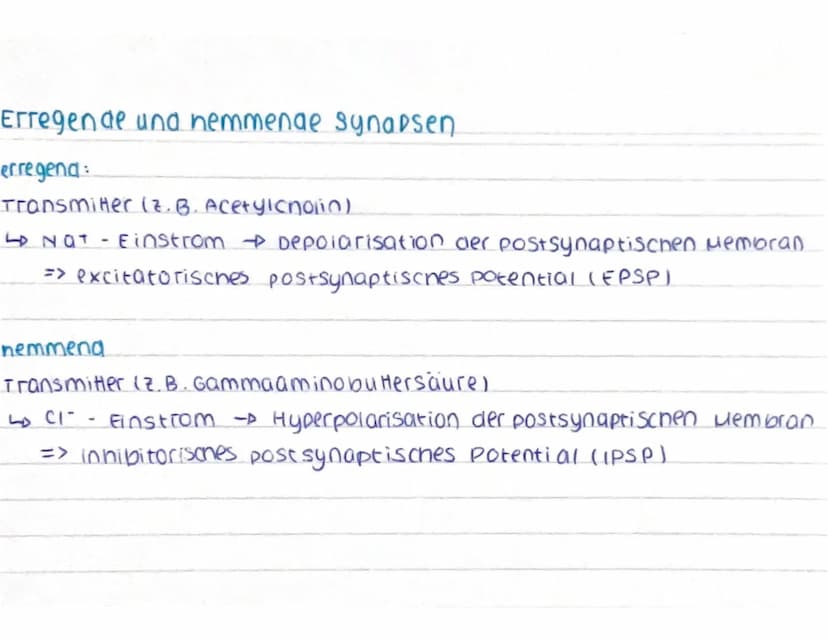 Erregende und hemmende Synapsen
erregend:
Transmitter (z.B. Acetylcholin)
↳ Na+ - Einstrom → Depolarisation der postsynaptischen Membran
=> excitatorisches postsynaptisches Potential (EPSP)
hemmend
Transmitter (z.B. Gammaaminobuttersäure)
↳ Cl⁻ - Einstrom → Hyperpolarisation der postsynaptischen Membran
=> inhibitorisches postsynaptisches Potential (IPSP)